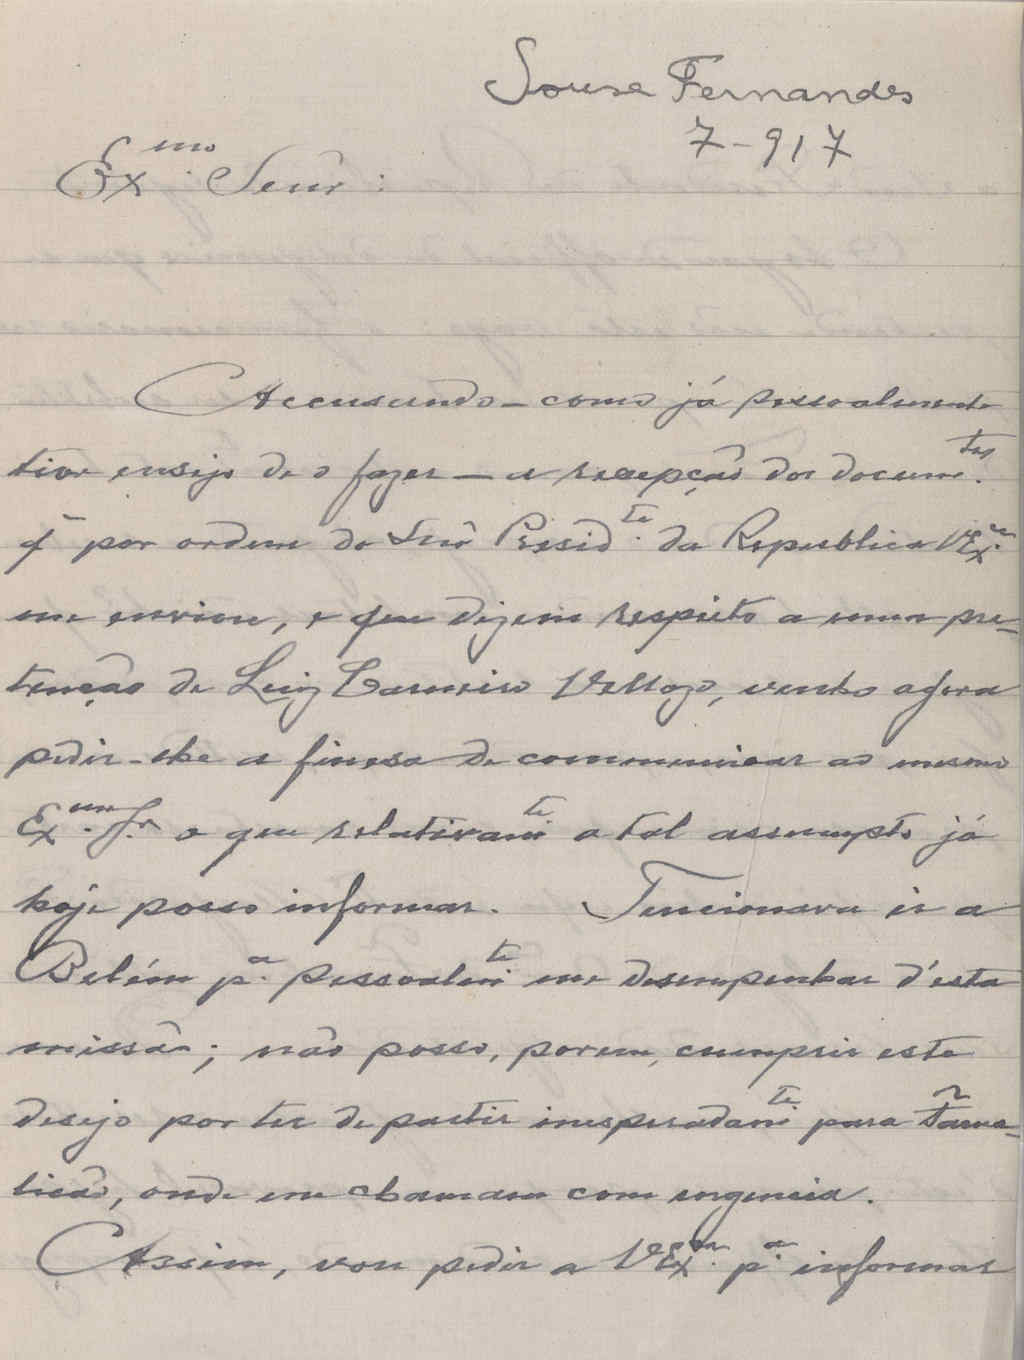 Sousa Fernandes
7-917
Exmo. Senr:
Accusando – como já pessoalmente
tive ensejo de o fazer – a recepção dos documtos.
q̃ por ordem do Snr̂ Presidte. da Republica VExa.
me enviou, e que dizem respeito a uma pre-
tenção de Luiz Carneiro Vellozo, venho agora
pedir-lhe a finesa de communicar ao mesmo
Exmo. Sr. o que relativamte a tal assumpto já
hoje posso informar. Tencionava ir a
Belém pa. pessoalmte me desempenhar d'esta
missão; não posso, porem, cumprir este
desejo por ter de partir inesperadamte para Fama-
licão, onde me chamam com urgencia.
Assim, vou pedir a VExa. pa. informar